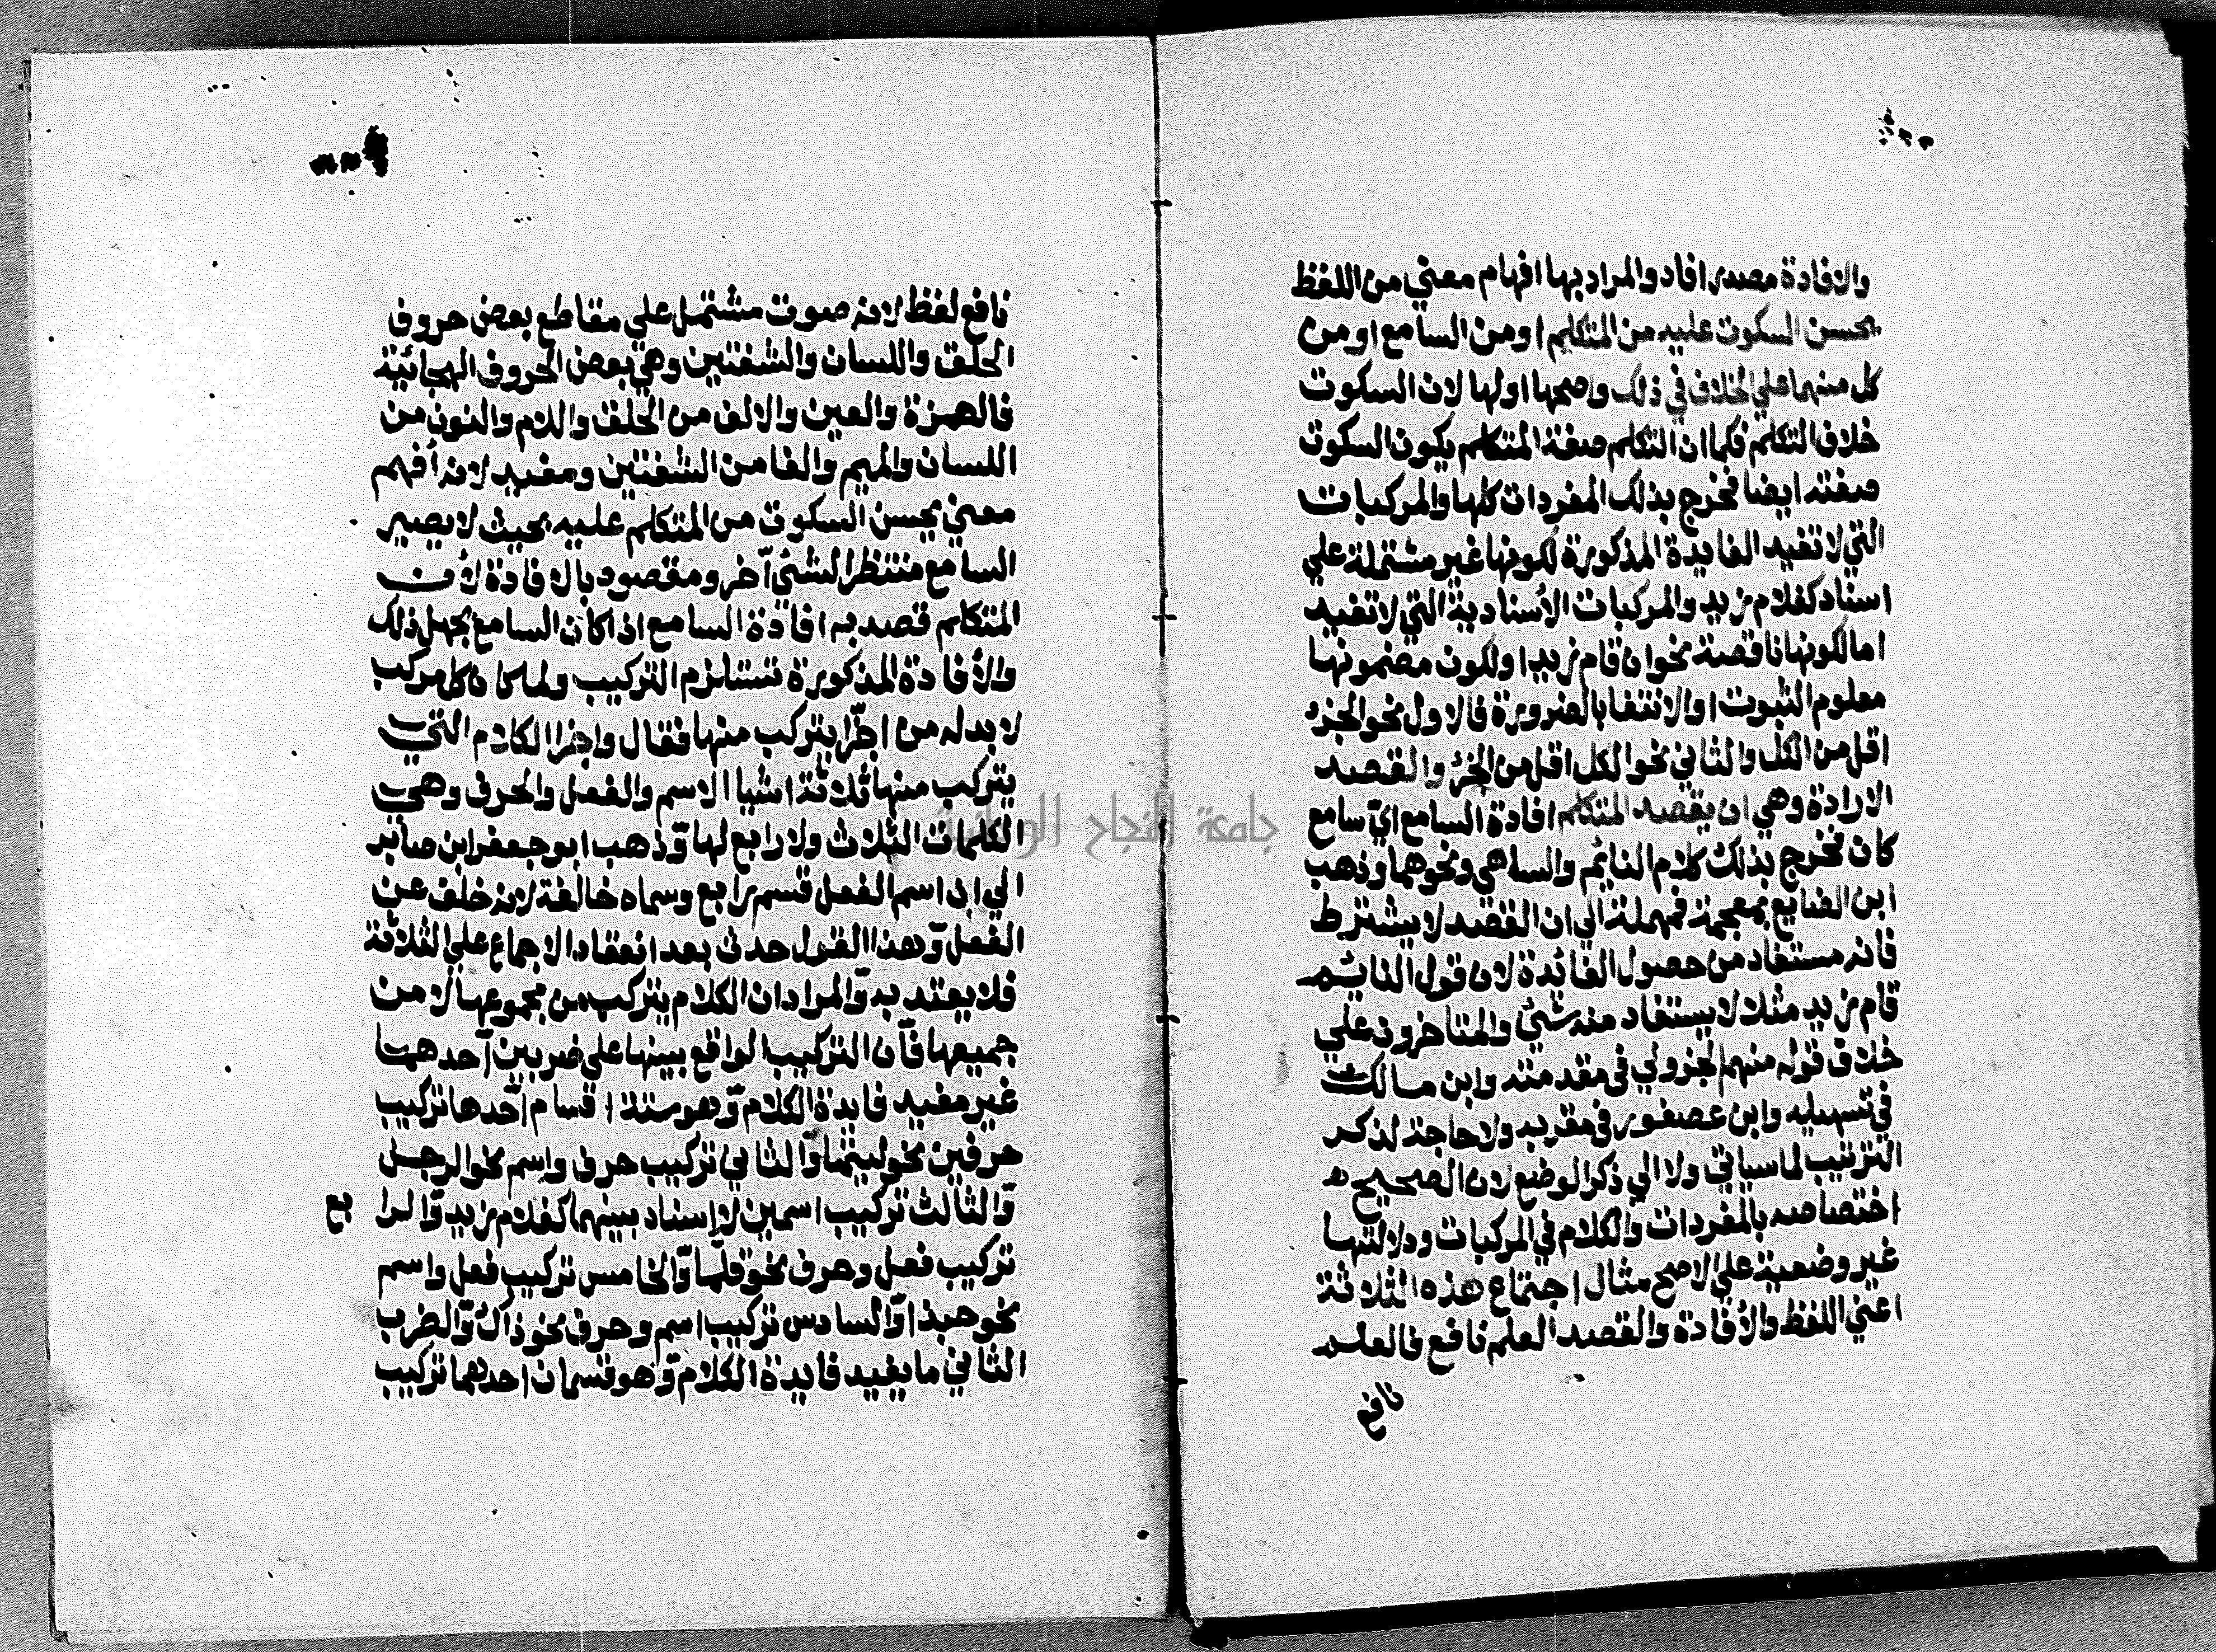 والافادة مصدر افاد والمراد بها افهام معني من اللفظ
يحسن السكوت عليه من المتكلم او من السامع او من
كل منهما علي الخلاف في ذلك واصحها اولها لان السكوت
خلاف التكلم فكما ان التكلم صفة المتكلم يكون السكوت
صفته ايضا فخرج بذلك المفردات كلها والمركبات
التي لا تفيد الفايدة المذكورة لكونها غير مشتملة علي
اسناد كغلام زيد والمركبات الأسنادية التي لا تفيد
اما لكونها ناقصة نحو ان قام زيد او لكون مضمونها
معلوم الثبوت او الانتفا بالضرورة فالاول نحو الجزء
اقل من الكل والثاني نحو الكل اقل من الجزء والقصد
الارادة وهي ان يقصد المتكلم افادة السامع اي سامع
كان فخرج بذلك كلام النايم والساهي ونحوهما وذهب
ابن الضايع بمعجمة فمهملة الي ان القصد لا يشترط
فانه مستفاد من حصول الفائدة لان قول النائم
قام زيد مثلا لا يستفاد منه شئ والمتاخرون علي
خلاف قوله منهم الجزولي في مقدمته وابن مالك
في تسهيله وابن عصفور في مقربه ولا حاجة لذكر
الترتيب لما سياتي ولا الي ذكر الوضع لان الصحيح
اختصاصه بالمفردات والكلام في المركبات ودلالتها
غير وضعية علي الاصح مثال اجتماع هذه الثلاثة
اعني اللفظ والأفادة والقصد العلم نافع فالعلم
نافع
نافع لفظ لانه صوت مشتمل علي مقاطع بعض حروف
الحلق واللسان والشفتين وهي بعض الحروف الهجائية
فالهمزة والعين والالف من الحلق واللام والنون من
اللسان والميم والفا من الشفتين ومفيد لانه أفهم
معني يحسن السكوت من المتكلم عليه بحيث لا يصير
السامع منتظرا لشئ آخر ومقصود بالافادة لأن
المتكلم قصد به افادة السامع اذا كان السامع يجهل ذلك
والأفادة المذكورة تستلزم التركيب ولما كان كل مركب
لا بد له من اجزا يتركب منها فقال واجزا الكلام التي
يتركب منها ثلاثة اشيا الاسم والفعل والحرف وهي
الكلمات الثلاث ولا رابع لها وذهب ابو جعفر ابن صابر
الي ان اسم الفعل قسم رابع وسماه خالفة لانه خلف عن
الفعل وهذا القول حدث بعد انعقاد الاجماع علي الثلاثة
فلا يعتد به والمراد ان الكلام يتركب من مجموعها لا من
جميعها فان التركيب الواقع بينها علي ضربين آحدهما
غير مفيد فايدة الكلام وهو ستة اقسام احدها تركيب
حرفين نحو ليتما والثاني تركيب حرف واسم نحو الرجل
والثالث تركيب اسمين لا اسناد بينهما كغلام زيد والرا بع
تركيب فعل وحرف نحو قلما والخامس تركيب فعل واسم
نحو حبذا والسادس تركيب اسم وحرف نحو ذاك والضرب
الثاني ما يفيد فايدة الكلام وهو قسمان احدهما تركيب
جامعة النجاح الوطنية